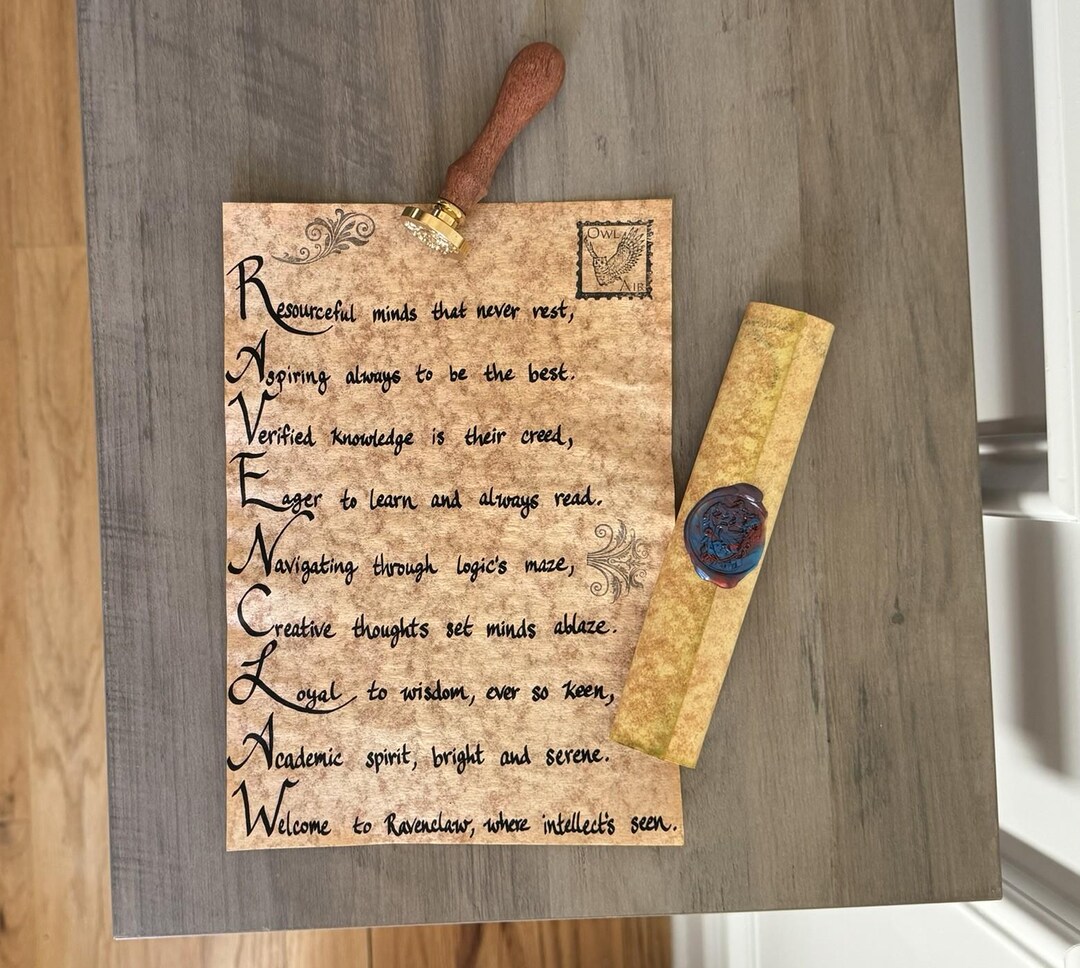 Owl
Air
Resourceful minds that never rest,
Aspiring always to be the best.
Verified knowledge is their creed,
Eager to learn and always read.
Navigating through logic's maze,
Creative thoughts set minds ablaze.
Loyal to wisdom, ever so keen,
Academic spirit, bright and serene.
Welcome to Ravenclaw, where intellect's seen.